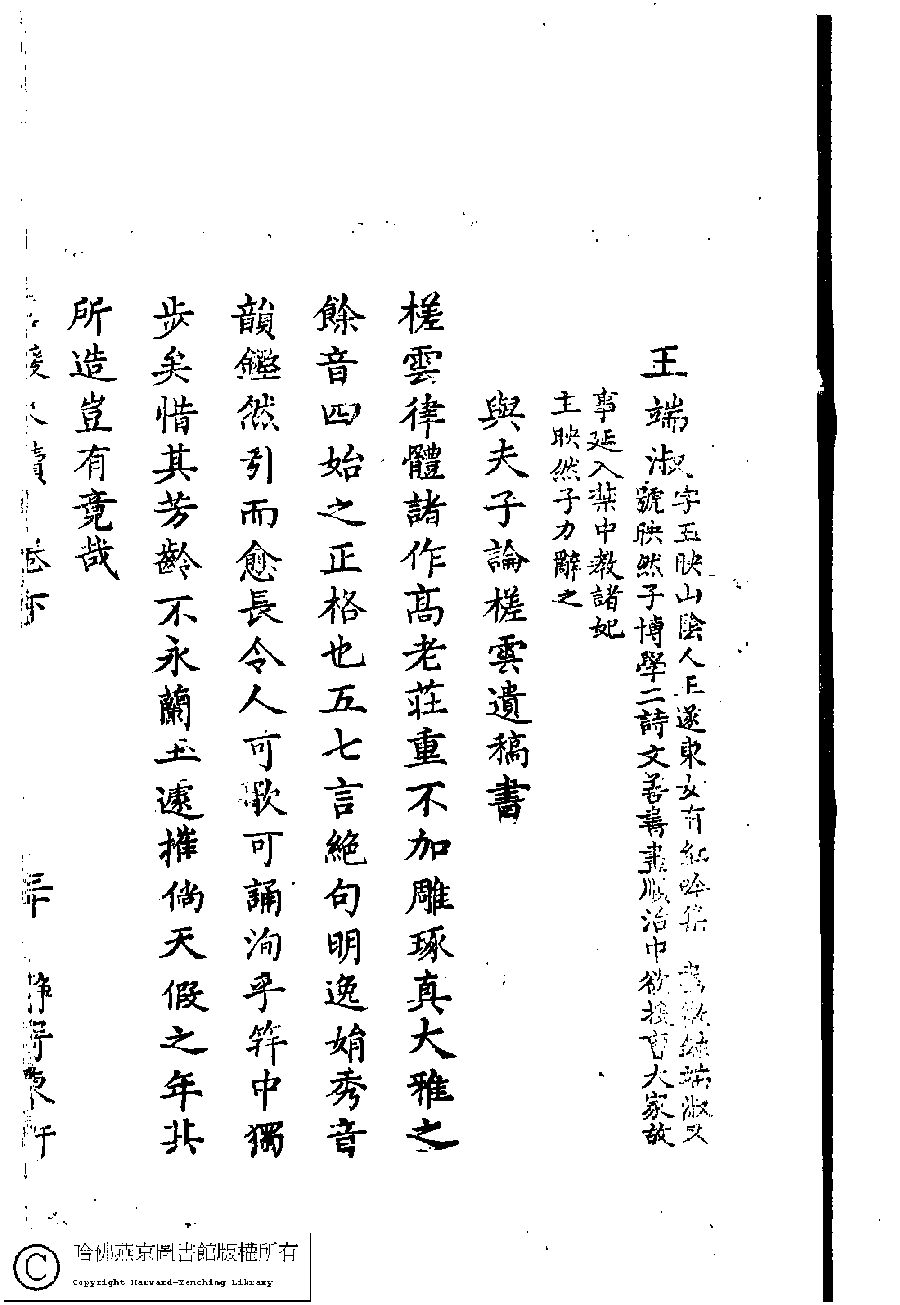 王端淑
字玉映山陰人王遂東女有紅吟集 端淑又
號映然子博學工詩文善書畫順治中欲援曹大家故
事延入禁中教諸妃
主映然子力辭之
與夫子論槎雲遺稿書
槎雲律體諸作高老莊重不加雕琢真大雅之
餘音四始之正格也五七言絕句明逸娟秀音
韻鏗然引而愈長令人可歌可誦洵乎筓中獨
步矣惜其芳齡不永蘭玉遽摧倘天假之年其
所造豈有竟哉
牘 卷下 三十 靜寄東軒
哈佛燕京圖書館版權所有
Copyright Harvard-Yenching Library